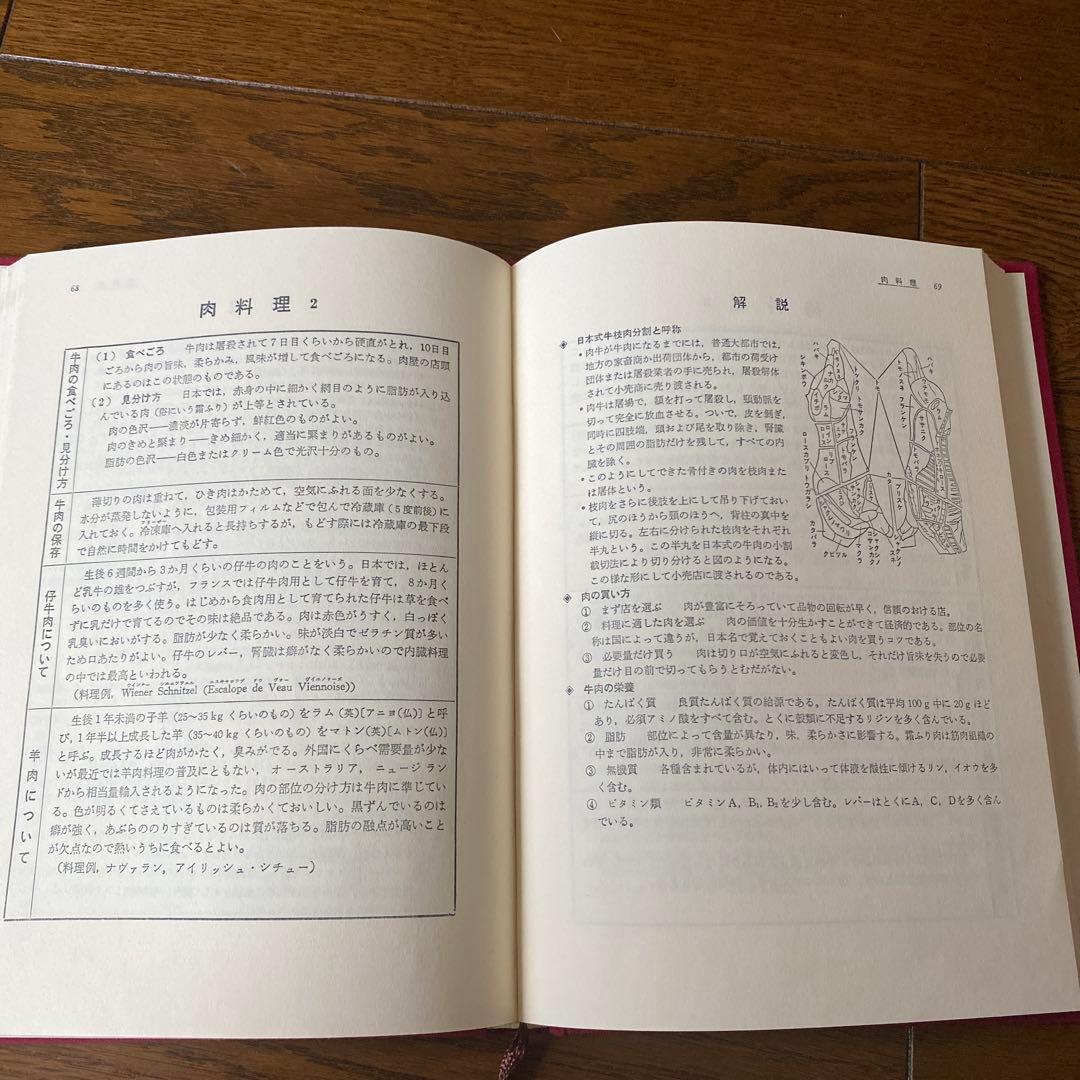 68
肉料理 2
牛肉の食べごろ・見分け方
(1) 食べごろ 牛肉は屠殺されて7日目くらいから硬直がとれ,10日目
ごろから肉の旨味,柔らかみ,風味が増して食べごろになる。肉屋の店頭
にあるのはこの状態のものである。
(2) 見分け方 日本では,赤身の中に細かく網目のように脂肪が入り込
んでいる肉(俗にいう霜ふり)が上等とされている。
肉の色沢——濃淡が片寄らず,鮮紅色のものがよい。
肉のきめと緊まり——きめ細かく,適当に緊まりがあるものがよい。
脂肪の色沢——白色またはクリーム色で光沢十分のもの。
牛肉の保存
薄切りの肉は重ねて,ひき肉はかためて,空気にふれる面を少なくする。
水分が蒸発しないように,包装用フィルムなどで包んで冷蔵庫(5度前後)に
入れておく。冷凍庫へ入れると長持ちするが,もどす際には冷蔵庫の最下段
で自然に時間をかけてもどす。
仔牛肉について
生後6週間から3か月くらいの仔牛の肉のことをいう。日本では,ほとん
ど乳牛の雄をつぶすが,フランスでは仔牛肉用として仔牛を育て,8か月く
らいのものを多く使う。はじめから食肉用として育てられた仔牛は草を食べ
ずに乳だけで育てるのでその味は絶品である。肉は赤色がうすく,白っぽく
乳臭いにおいがする。脂肪が少なく柔らかい。味が淡白でゼラチン質が多い
ため口あたりがよい。仔牛のレバー,腎臓は癖がなく柔らかいので内臓料理
の中では最高といわれる。
(料理例,Wiener Schnitzel (Escalope de Veau Viennoise))
羊肉について
生後1年未満の子羊(25~35kgくらいのもの)をラム(英)[アニョ(仏)]と呼
び,1年半以上成長した羊(35~40kgくらいのもの)をマトン(英)[ムトン(仏)]
と呼ぶ。成長するほど肉がかたく,臭みがでる。外国にくらべ需要量が少な
いが最近では羊肉料理の普及にともない,オーストラリア,ニュージラン
ドから相当量輸入されるようになった。肉の部位の分け方は牛肉に準じてい
る。色が明るくてさえているものは柔らかくておいしい。黒ずんでいるのは
癖が強く,あぶらののりすぎているのは質が落ちる。脂肪の融点が高いこと
が欠点なので熱いうちに食べるとよい。
(料理例,ナヴァラン,アイリッシュ・シチュー)
肉料理 69
解説
◈ 日本式牛枝肉分割と呼称
•肉牛が牛肉になるまでには,普通大都市では,
地方の家畜商か出荷団体から,都市の荷受け
団体または屠殺業者の手に売られ,屠殺解体
されて小売商に売り渡される。
•肉牛は屠場で,額を打って屠殺し,頸動脈を
切って完全に放血させる。ついで,皮を剝ぎ,
同時に四肢端,頭および尾を取り除き,腎臓
とその周囲の脂肪だけを残して,すべての内
臓を除く。
•このようにしてできた骨付きの肉を枝肉また
は屠体という。
•枝肉をさらに後肢を上にして吊り下げておい
て,尻のほうから頸のほうへ,背柱の真中を
縦に切る。左右に分けられた枝肉をそれぞれ
半丸という。この半丸を日本式の牛肉の小割
裁切法により切り分けると図のようになる。
この様な形にして小売店に渡されるのである。
ハバキ
シキンボウ
トックリ
トモサンカク
トモバラ
フランケン
ササニク
ブリスケ
カタバラ
クビヅル
マクラ
ロースカブリ
トウガラシ
◈ 肉の買い方
① まず店を選ぶ 肉が豊富にそろっていて品物の回転が早く,信頼のおける店。
② 料理に適した肉を選ぶ 肉の価値を十分生かすことができて経済的である。部位の名
称は国によって違うが,日本名で覚えておくこともよい肉を買うコツである。
③ 必要量だけ買う 肉は切り口が空気にふれると変色し,それだけ旨味を失うので必要
量だけ目の前で切ってもらうとむだがない。
◈ 牛肉の栄養
① たんぱく質 良質たんぱく質の給源である。たんぱく質は平均100g中に20gほど
あり,必須アミノ酸をすべて含む。とくに穀類に不足するリジンを多く含んでいる。
② 脂肪 部位によって含量が異なり,味,柔らかさに影響する。霜ふり肉は筋肉組織の
中まで脂肪が入り,非常に柔らかい。
③ 無機質 各種含まれているが,体内にはいって体液を酸性に傾けるリン,イオウを多
く含む。
④ ビタミン類 ビタミンA,B₁,B₂を少し含む。レバーはとくにA,C,Dを多く含ん
でいる。